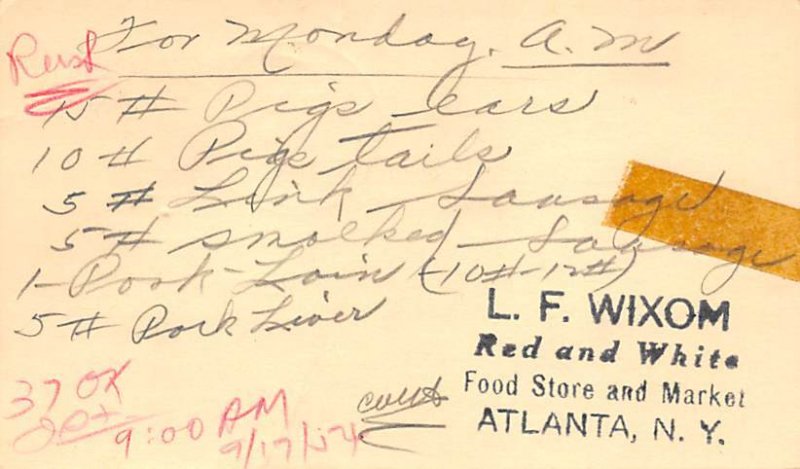 For Monday, A.M
Rush
15 # Pigs ears
10 # Pigs tails
5 # Link Sausage
5 # smolked Sausage
1- Pork-Loin (10#-12#)
5 # Pork Liver
L. F. WIXOM
Red and White
Food Store and Market
ATLANTA, N. Y.
37 OK
9:00 AM
9/17/54